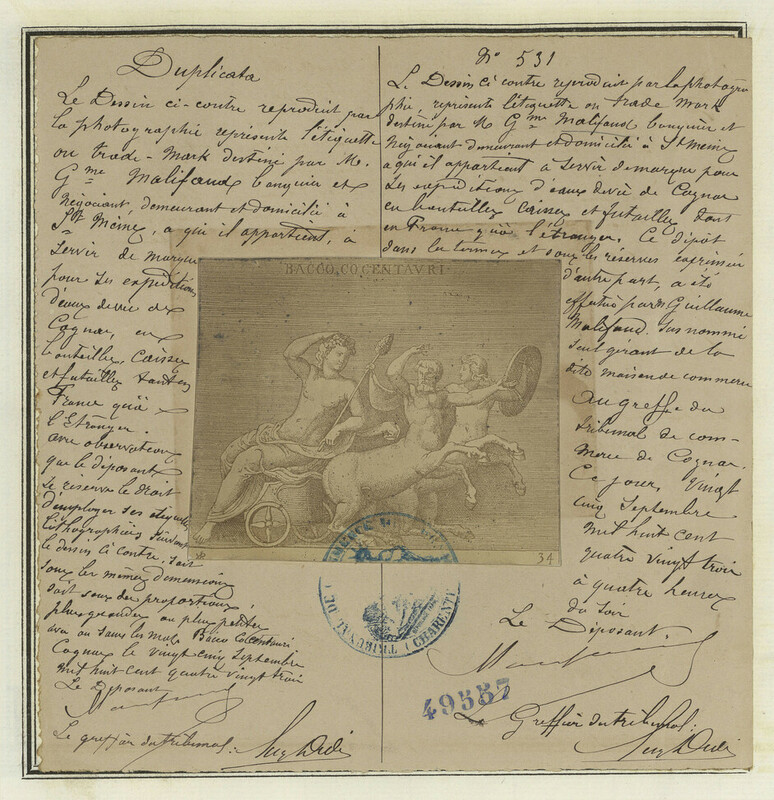 Duplicata
Le Dessin ci-contre reproduit par
la photographie représente l'étiquette
ou trade-Mark destiné par M.
Gme Malifaud banquier et
Négociant, demeurant et domicilié à
St Même, a qui il appartient, à
Servir de marque
pour ses expéditions
d'eaux de vie de
Cognac, en
bouteilles, Caisses
et futailles tant en
France qu'à
l'Etranger.
avec observation
que le déposant
se reserve le droit
d'employer ses étiquettes
lithographiées suivant
le dessin ci contre, soit
sous les mêmes dimensions
soit sous des proportions
plus grandes ou plus petites
avec ou sans les mots Bacco Cocentauri
Cognac le vingt cinq Septembre
mil huit cent quatre vingt trois
Le Déposant
Le greffier du tribunal:
No 531
Le Dessin ci contre reproduit par la photogra
phie, représente l'étiquette ou trade mark
destiné par M Gme Malifaud banquier et
Négociant demeurant et domicilié à St Même
a qui il appartient à Servir de marque pour
ses expéditions d'eaux de vie de Cognac
en bouteilles Caisses et futailles tant
en France qu'à l'étranger. Ce dépôt
dans les termes et sous les réserves exprimées
d'autre part, a été
effectué par M. Guillaume
Malifaud. Sus nommé
seul gérant de la
dite maison de commerce
au greffe du
tribunal de com-
merce de Cognac.
Ce jour, vingt
cinq Septembre
mil huit cent
quatre vingt trois
à quatre heures
du soir
Le Déposant.
Le Greffier du tribunal:
BACCO,CO CENTAVRI.
34
TRIBUNAL DE COMMERCE
(CHARENTE)
49557